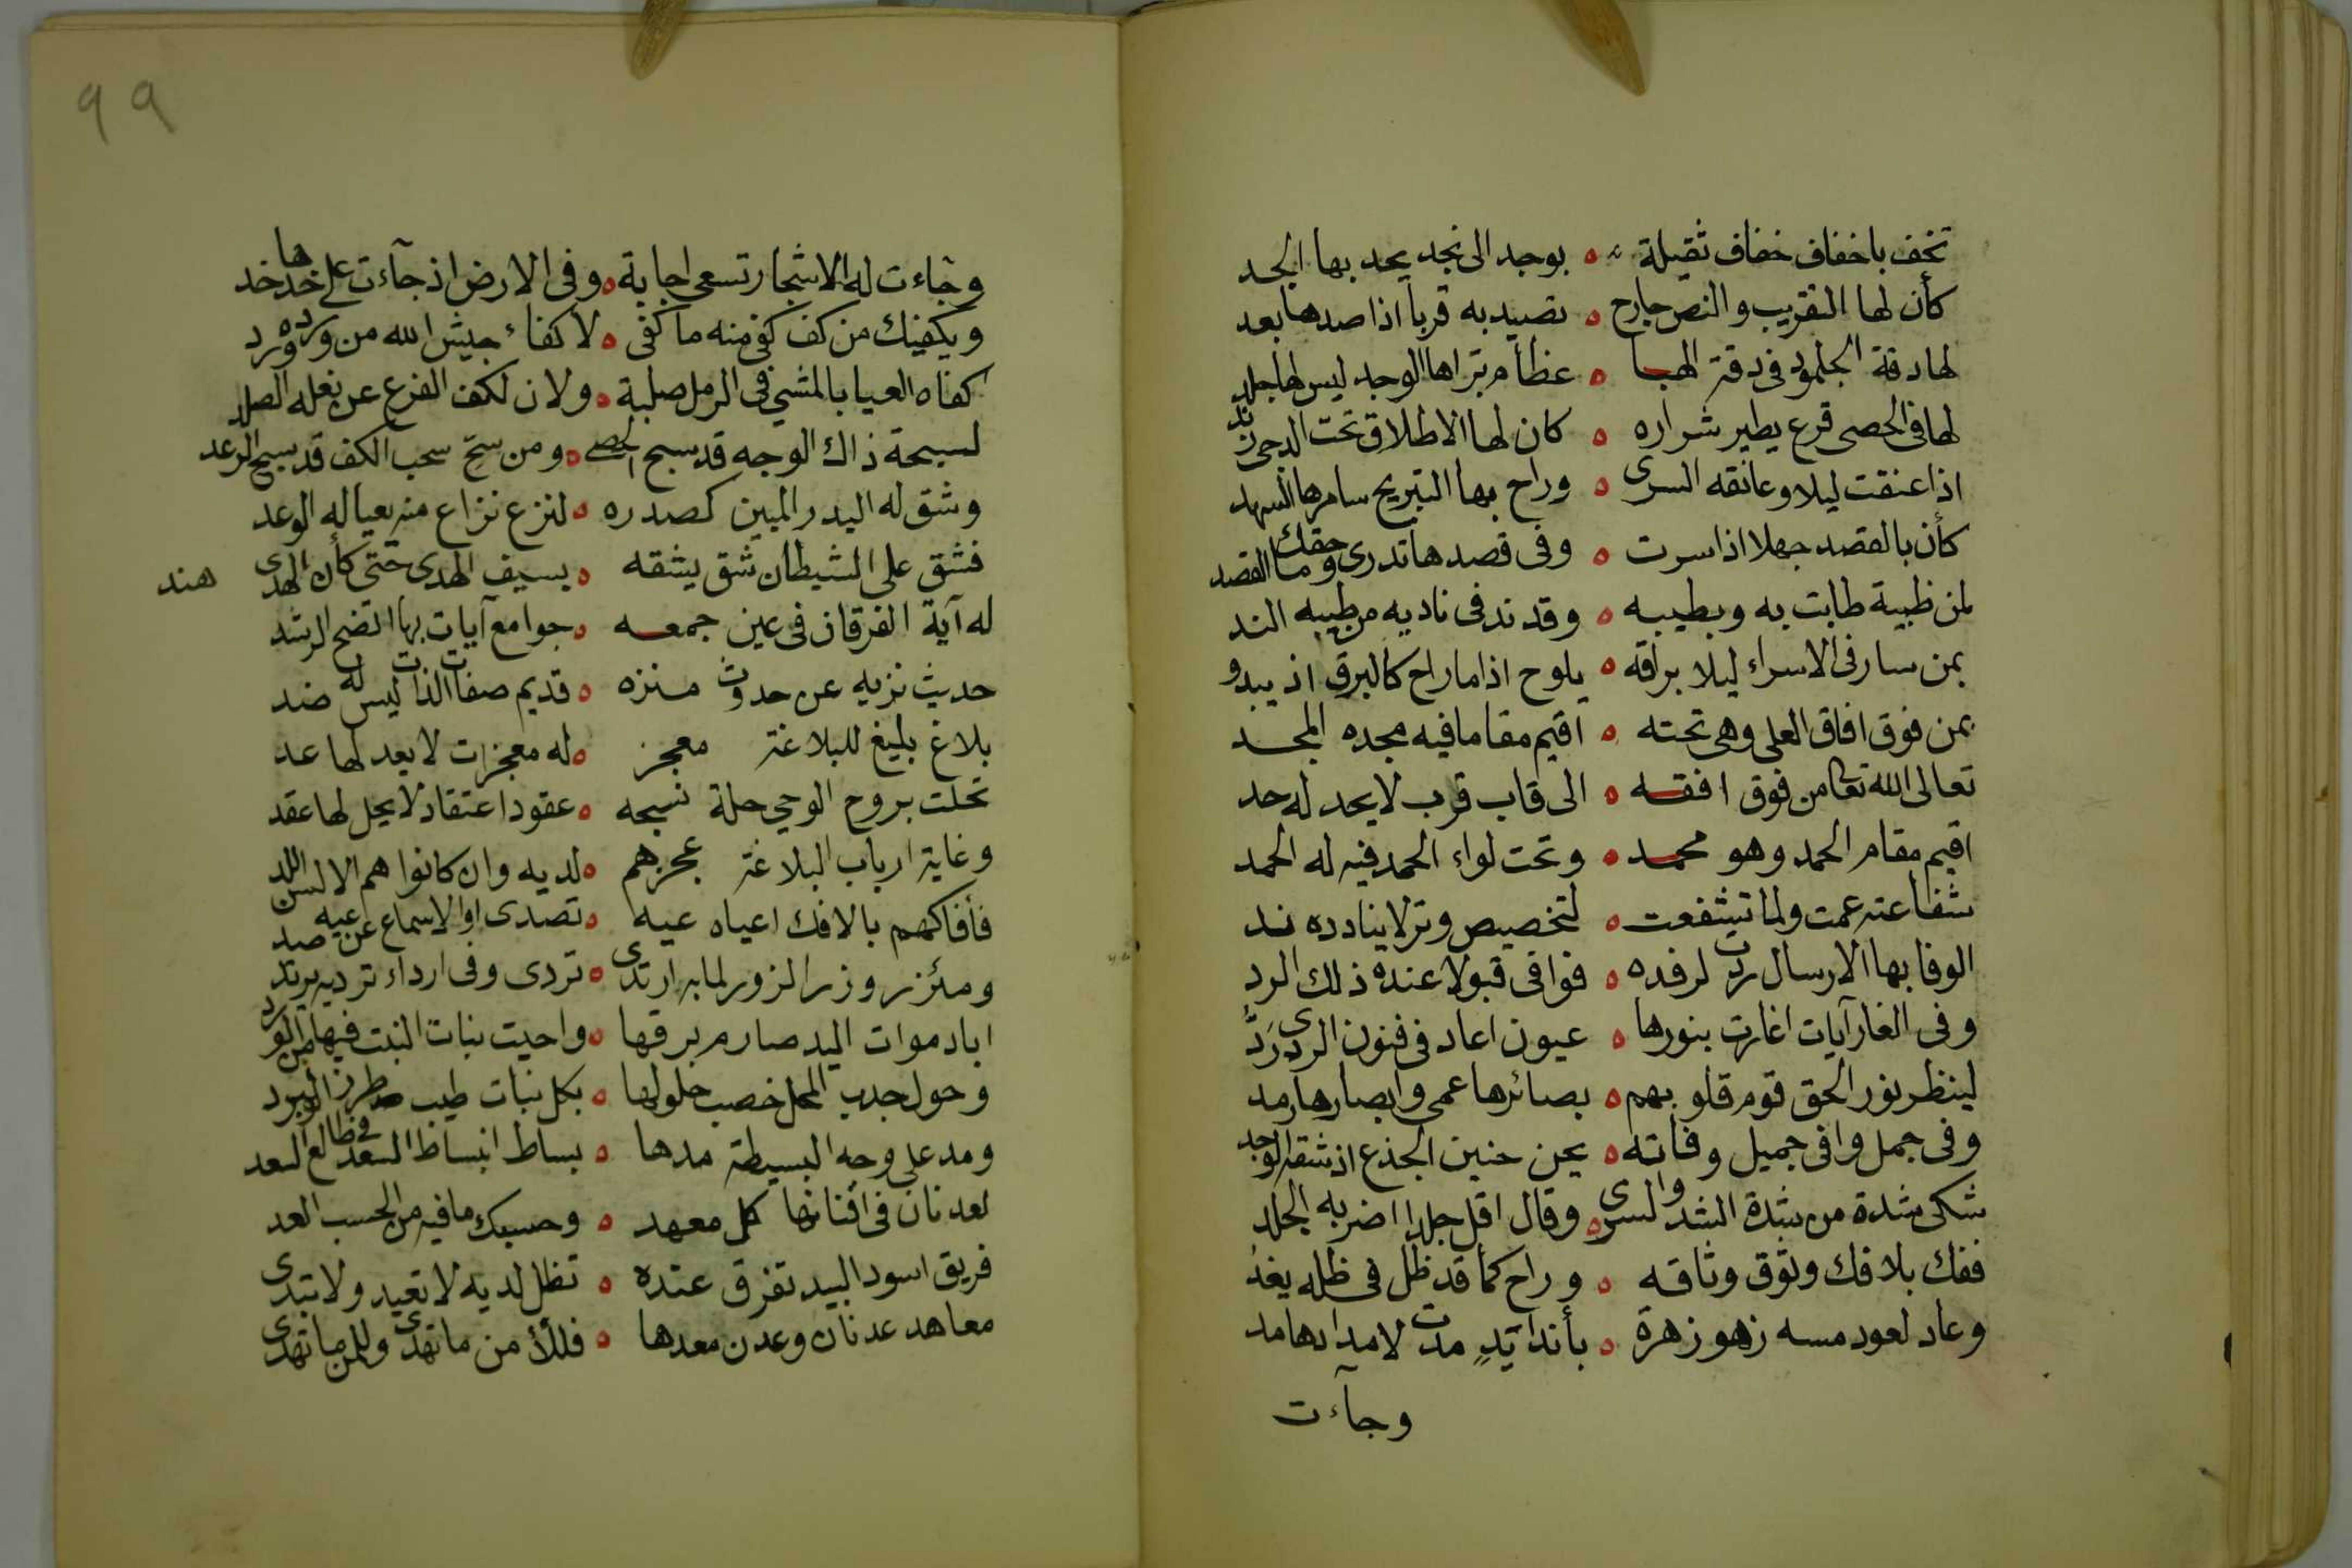 تخف باخفاف خفاف ثقيلة ه بوجد الى نجد يحد بها الجد
كأن لها التقريب والنص جارح ه تصيد به قرباً اذا صدها بعد
لها دقة الجلمود فى دقة الهبا ه عظام تراها الوجد ليس لها جلد
لها فى الحصى قرع يطير شراره ه كان لها الاطلاق تحت الدجى زند
اذا عنقت ليلا وعانقه السرى ه وراح بها التبريح سامرها السهد
كأن بالقصد جهلا اذا سرت ه وفى قصدها تدرى وحقك ما القصد
لمن ظيبة طابت به وبطيبه ه وقد ند فى ناديه من طيبه الند
بمن سار فى الاسراء ليلا براقه ه يلوح اذا ما راح كالبرق اذ يبدو
بمن فوق افاق العلى وهى تحته ه اقيم مقاما فيه مجده المجد
تعالى الله تعا من فوق افقه ه الى قاب قرب لا يحد له حد
اقيم مقام الحمد وهو محمد ه وتحت لواء الحمد فيه له الحمد
شفاعته عمت ولما تشفعت ه لتخصيص وتر لا ينادده ند
الوفا بها الارسال ردت لرفده ه فوافى قبولا عنده ذلك الرد
وفى الغار آيات اغارت بنورها ه عيون اعاد فى فنون الردى رَدُّ
لينظر نور الحق قوم قلوبهم ه بصائرها عمى وابصارها رمد
وفى جمل وافى جميل وفاته ه يحن حنين الجذع اذ شقه الوجد
شكى شدة من شدة الشد والسرى ه وقال اقل جلدا اضر به الجلد
ففك بلا فك وثوق وثاقه ه وراح كما قد ظل فى ظله يغد
وعاد لعود مسه زهو زهرة ه بأنداً يَدٍ مدت لامدادها مد
وجآءت
٩٩
وجاءت له الاشجار تسعى اجابة ه وفى الارض اذ جآءت على خدها خد
ويكفيك من كف كفى منه ما كفى ه لا كفاء جيش الله من ورده ورد
كفاه العيا بالمشي فى الرمل صلبة ه ولان لكف الفزع عن نعله الصلد
لسبحة ذاك الوجه قد سبح الحصى ه ومن سح سحب الكف قد سبح الرعد
وشق له البدر المبين كصدره ه لنزع نزاع منه يعيا له الوعد
فشق على الشيطان شق يشقه ه بسيف الهدى حتى كأن الهدى هند
له آية الفرقان فى عين جمعه ه جوامع آيات بها اتضح الرشد
حديث نزيه عن حدوث منزه ه قديم صفات الذات ليس له ضد
بلاغ بليغ للبلاغة معجز ه له معجزات لا يعد لها عد
تحلت بروح الوحي حلة نسجه ه عقود اعتقاد لا يحل لها عقد
وغاية ارباب البلاغة عجزهم ه لديه وان كانوا هم الالسن اللد
فأفاكهم بالافك اعياه عيه ه تصدى والاسماع عن عيه صد
ومئزر وزر الزور لما به ارتدى ه تردى وفى ارداء ترديه يرتد
اباد موات البيد صارم برقها ه واحيت نبات النبت فيها من الورد
وحول جدب المحل خصب حلولها ه بكل نبات طيب طرز البرد
ومد على وجه البسيطة مدها ه بساط انبساط فى طالع السعد
لعدنان فى افنانها كل معهد ه وحسبك ما فيه من الحسب العد
فريق اسود البيد تفرق عنده ه تظل لديه لا تعيد ولا تبدى
معاهد عدنان وعدن معدها ه فللأ من ما تهدى وللمن ما تهدى